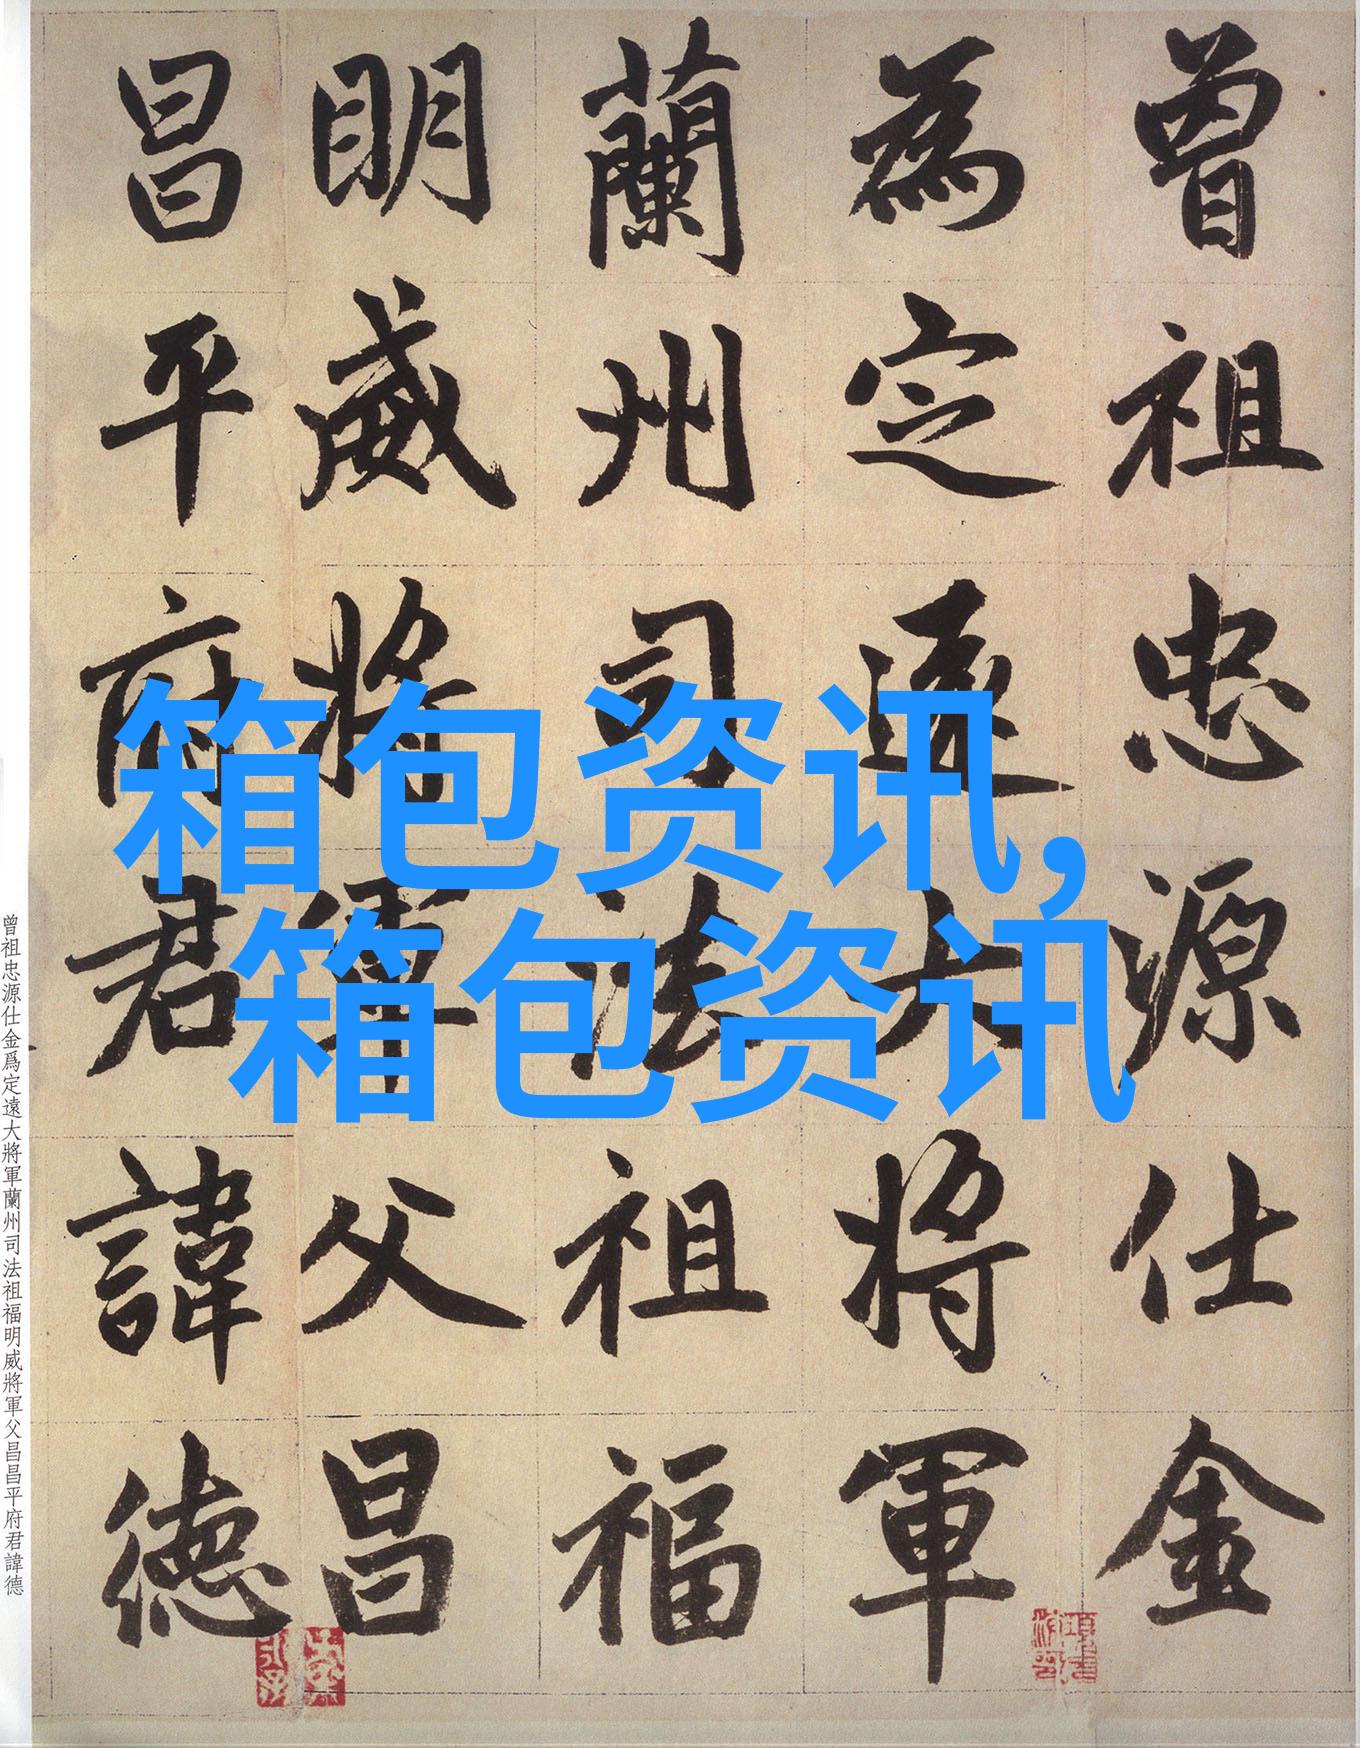 曾祖忠源仕金
為定遠大將軍
蘭州司法祖福
明威將軍父昌
昌平府君諱德
箱包资讯,
箱包资讯
曾祖忠源仕金爲定遠大將軍蘭州司法祖福明威將軍父昌昌平府君諱德